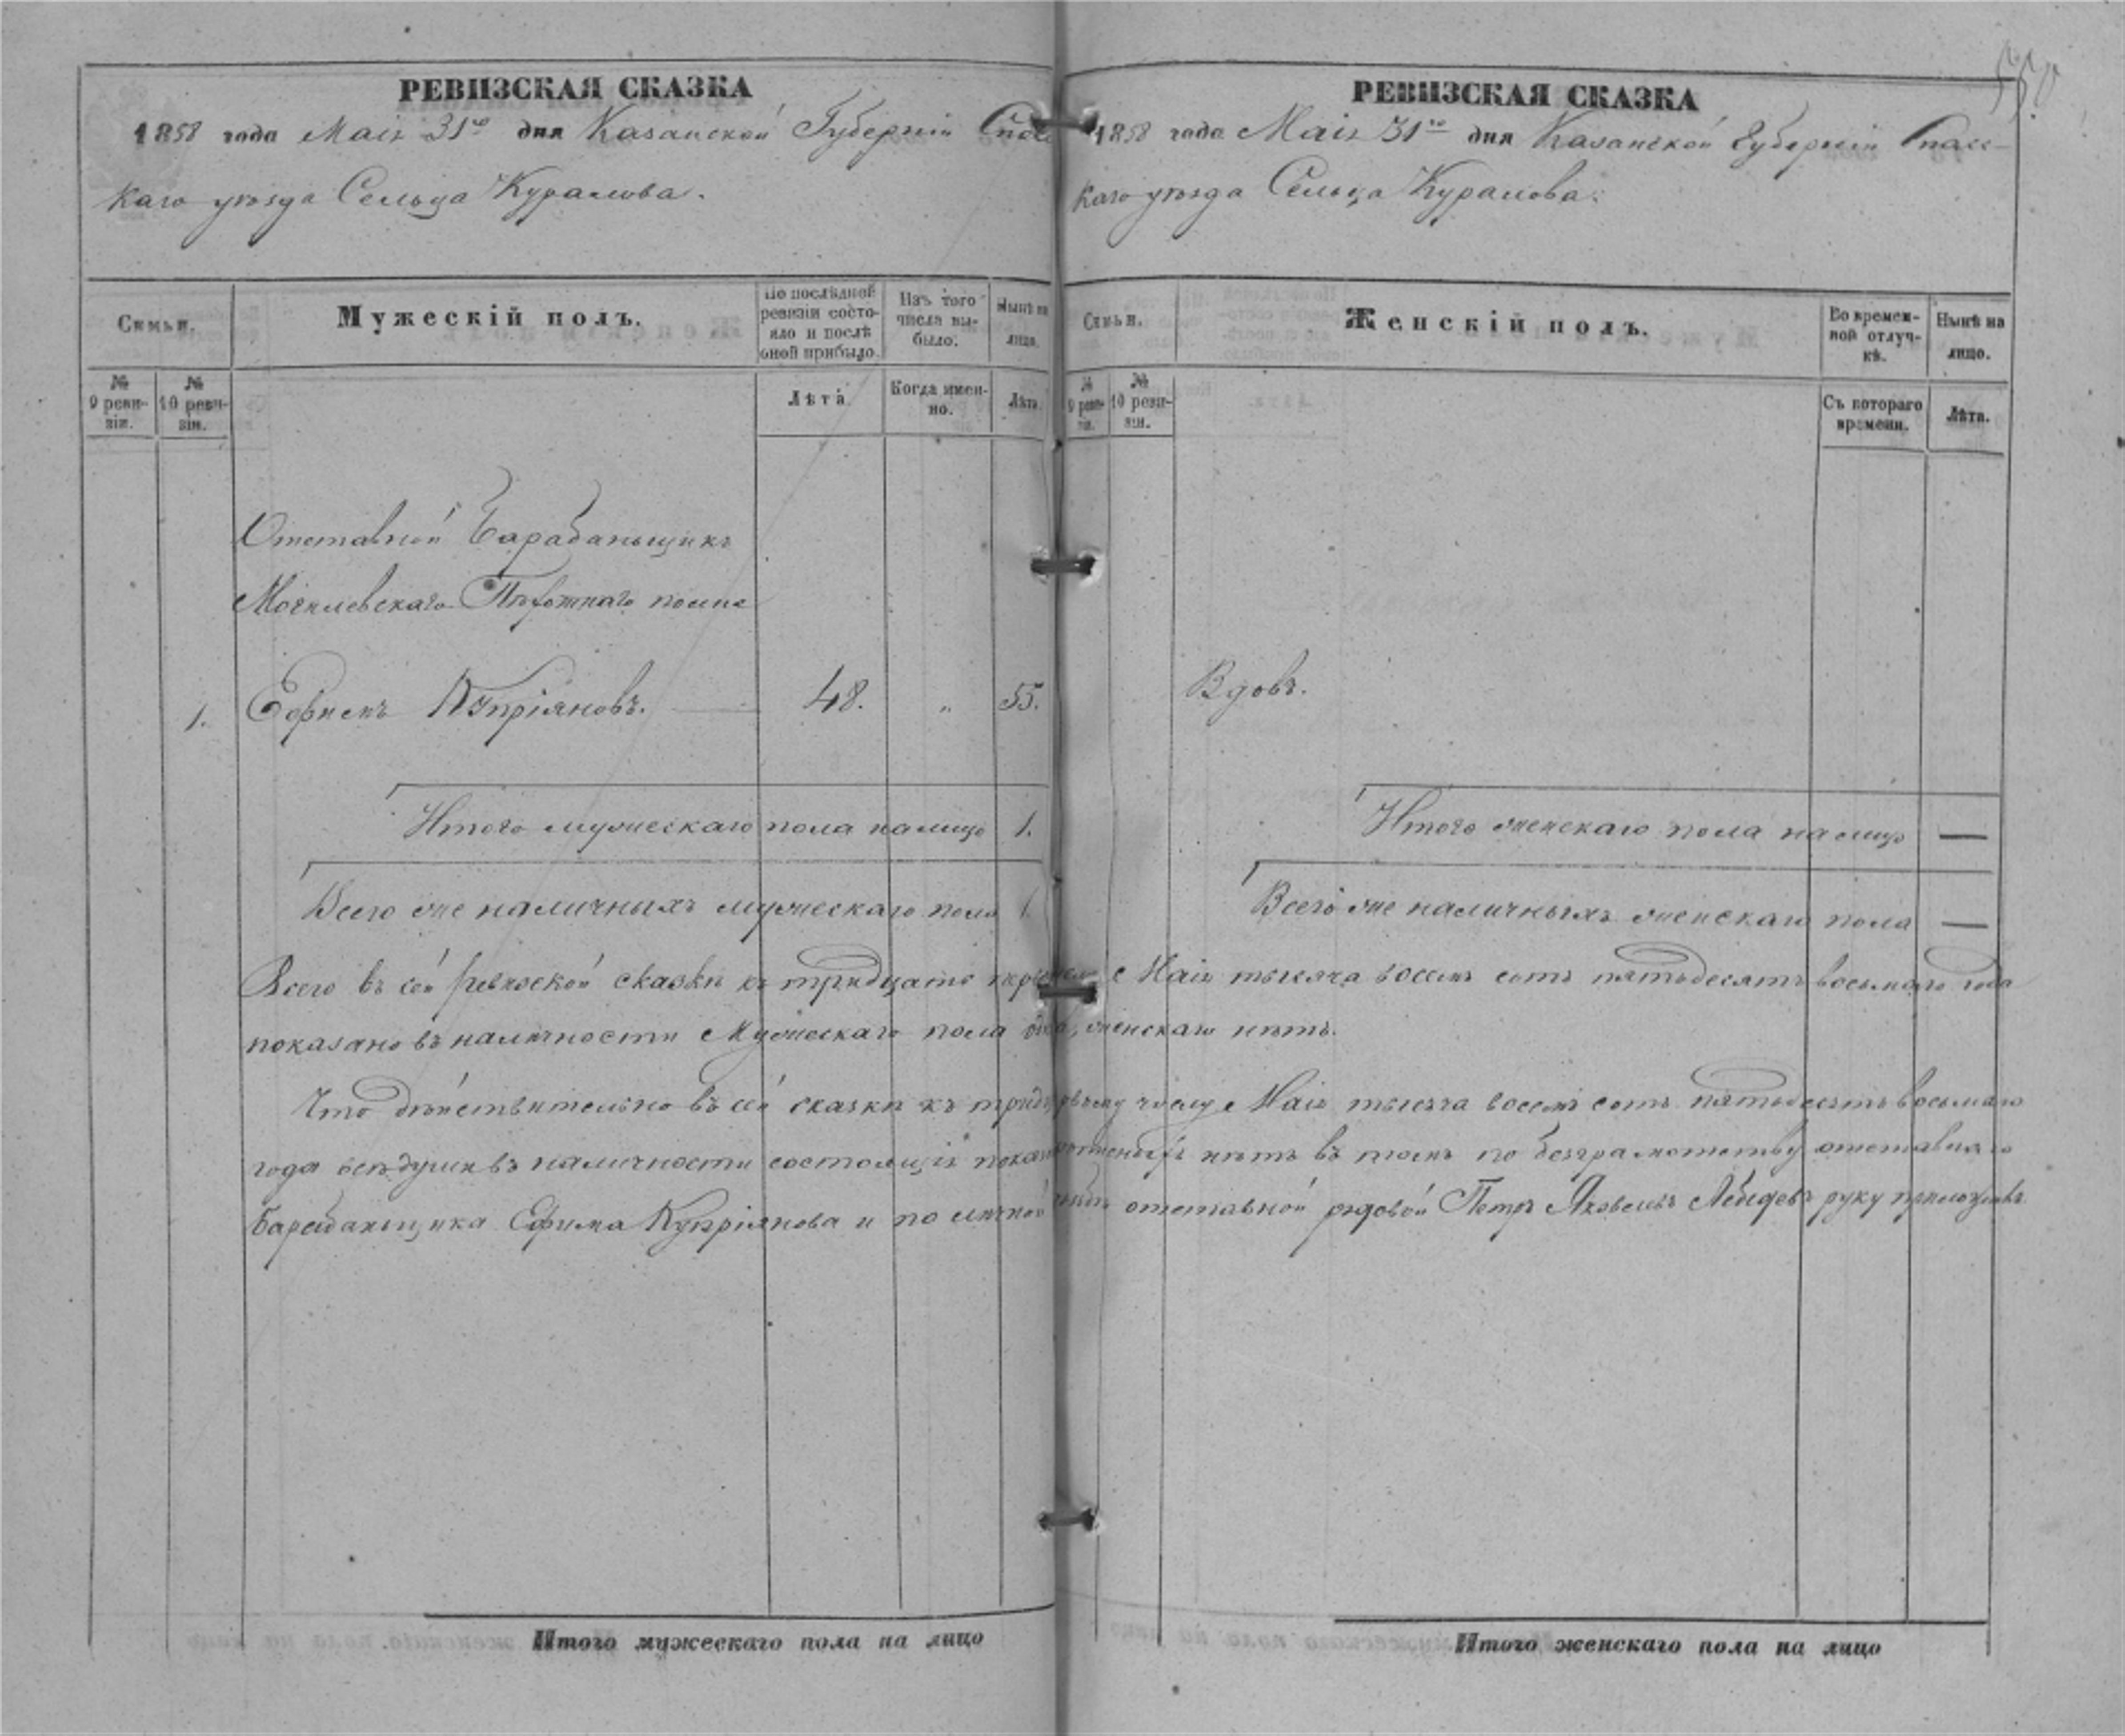 550
РЕВИЗСКАЯ СКАЗКА
1858 года Маія 31го дня Казанской Губерніи Спас
каго уѣзда Сельца Куралова.
Семьи.
Мужескій полъ.
По послѣдней ревизіи состояло и послѣ оной прибыло.
Изъ того числа выбыло.
Нынѣ на лицо.
№ 9 ревизіи.
№ 10 ревизіи.
Лѣта.
Когда именно.
Лѣта.
Отставной Барабаньщикъ
Могилевскаго Пѣхотнаго полка
1. Ефимъ Купріяновъ. 48. „ 55.
Итого мужескаго пола налицо 1.
Всего же наличныхъ мужескаго пола 1.
РЕВИЗСКАЯ СКАЗКА
1858 года Маія 31го дня Казанской Губерніи Спас-
каго уѣзда Сельца Куралова.
Семьи.
Женскій полъ.
Во временной отлучкѣ.
Нынѣ на лицо.
№ 9 ревизіи.
№ 10 ревизіи.
Съ котораго времени.
Лѣта.
Вдовъ.
Итого женскаго пола налицо —
Всего же наличныхъ женскаго пола —
Всего въ сей ревизской сказки къ тридцать Маія тысяча восемь сотъ пятьдесятъ восьмаго года
показано въ наличности Мужескаго пола женскаго нѣтъ.
Что дѣйствительно въ сей сказки къ числу Маія тысяча восемь сотъ пятьдесятъ восьмаго
года всѣ души въ наличности состоящія нѣтъ въ томъ по безграмотству отставнаго
барабаньщика Ефима Купріянова и по личной отставной рядовой Петръ Яковлевъ Лебедевъ руку приложилъ
Итого мужескаго пола на лицо
Итого женскаго пола на лицо